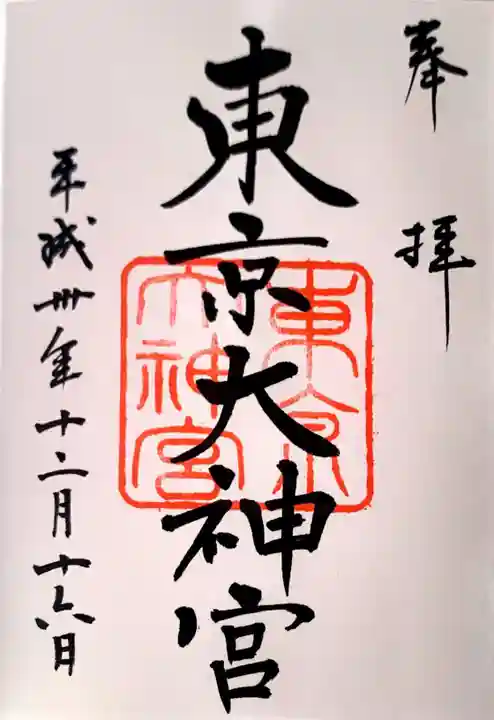 奉拝
東京大神宮
東京大神宮
平成卅年十二月十六日